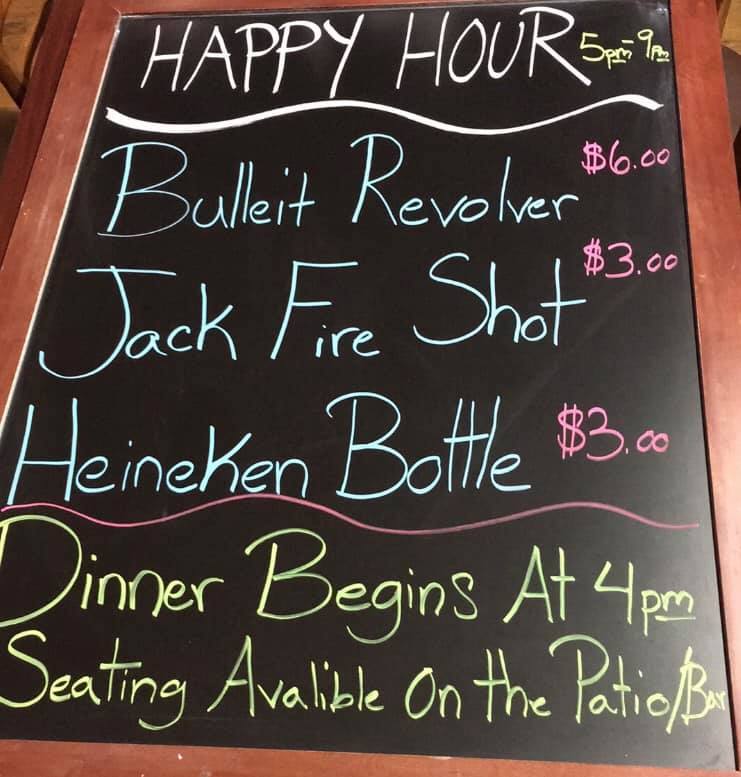 HAPPY HOUR 5pm-9pm
Bulleit Revolver $6.00
Jack Fire Shot $3.00
Heineken Bottle $3.00
Dinner Begins At 4pm
Seating Avalible On the Patio/Bar